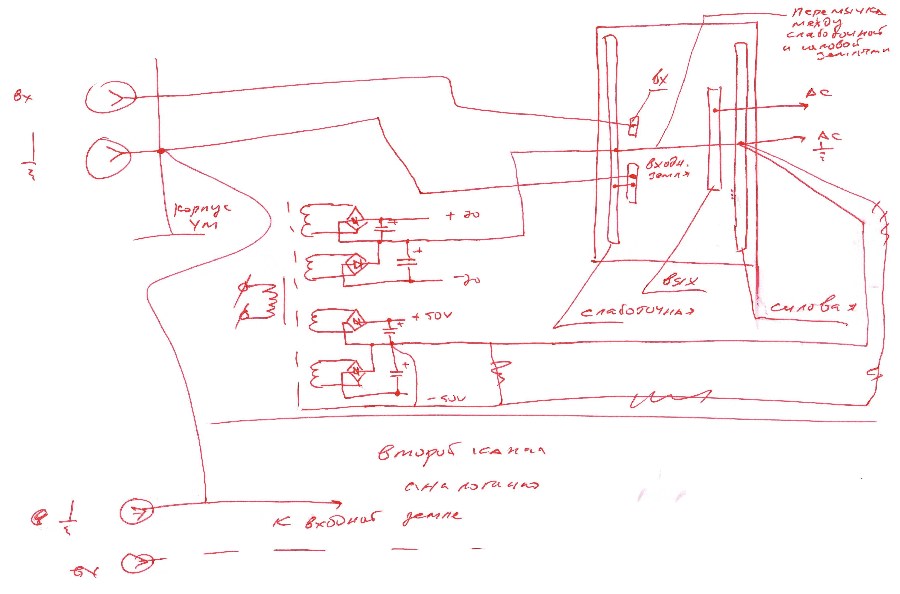 Перемычка
между
слаботочной
и силовой
землями
вх
вх
АС
АС
входн.
земля
корпус
УМ
+20
-20
+50V
-50V
вых
слаботочная
силовая
Второй канал
аналогично
К входной земле
вх